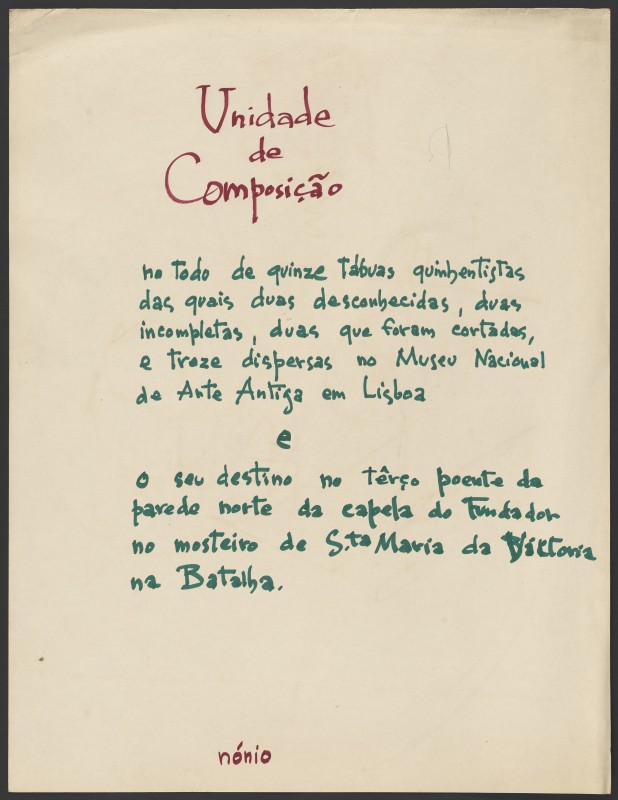 Unidade
de
Composição
no todo de quinze tábuas quinhentistas
das quais duas desconhecidas, duas
incompletas, duas que foram cortadas,
e treze dispersas no Museu Nacional
de Arte Antiga em Lisboa
e
o seu destino no têrço poente da
parede norte da capela do Fundador
no mosteiro de S.ta Maria da
na Batalha.
nónio